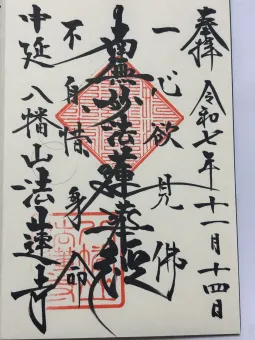 奉拝 令和七年十一月十四日
一心欲見佛
南無妙法蓮華経
不自惜身命
中延 八幡山法蓮寺